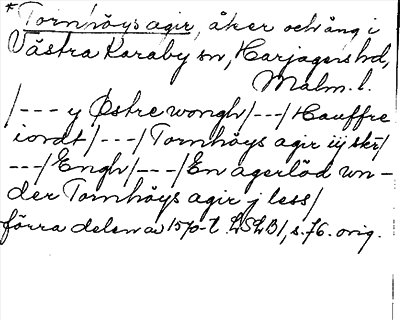 * Tornhöys agir, åker och äng i
Västra Karaby sn, Harjagers hd,
Malm. l.
/--- y Østre wongh/---/ Hauffre
iordt/---/ Tornhöys agir iij skr/
---/ Engh/---/ En agerlöd wn-
der Tornhöys agir j less/
förra delen av 1570-t. LSLB1, s. 76. orig.